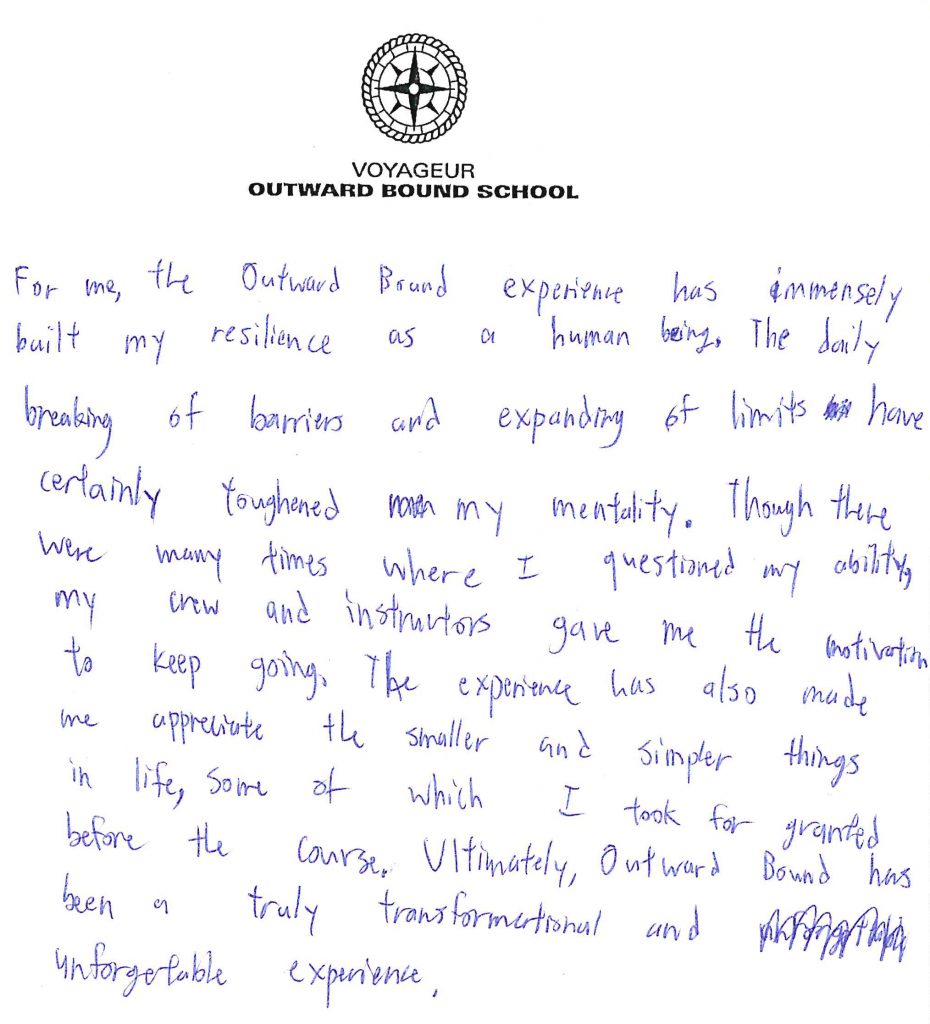 VOYAGEUR
OUTWARD BOUND SCHOOL
For me, the Outward Bound experience has immensely
built my resilience as a human being. The daily
breaking of barriers and expanding of limits have
certainly toughened my mentality. Though there
were many times where I questioned my ability,
my crew and instructors gave me the motivation
to keep going. The experience has also made
me appreciate the smaller and simpler things
in life, some of which I took for granted
before the course. Ultimately, Outward Bound has
been a truly transformational and
unforgettable experience.